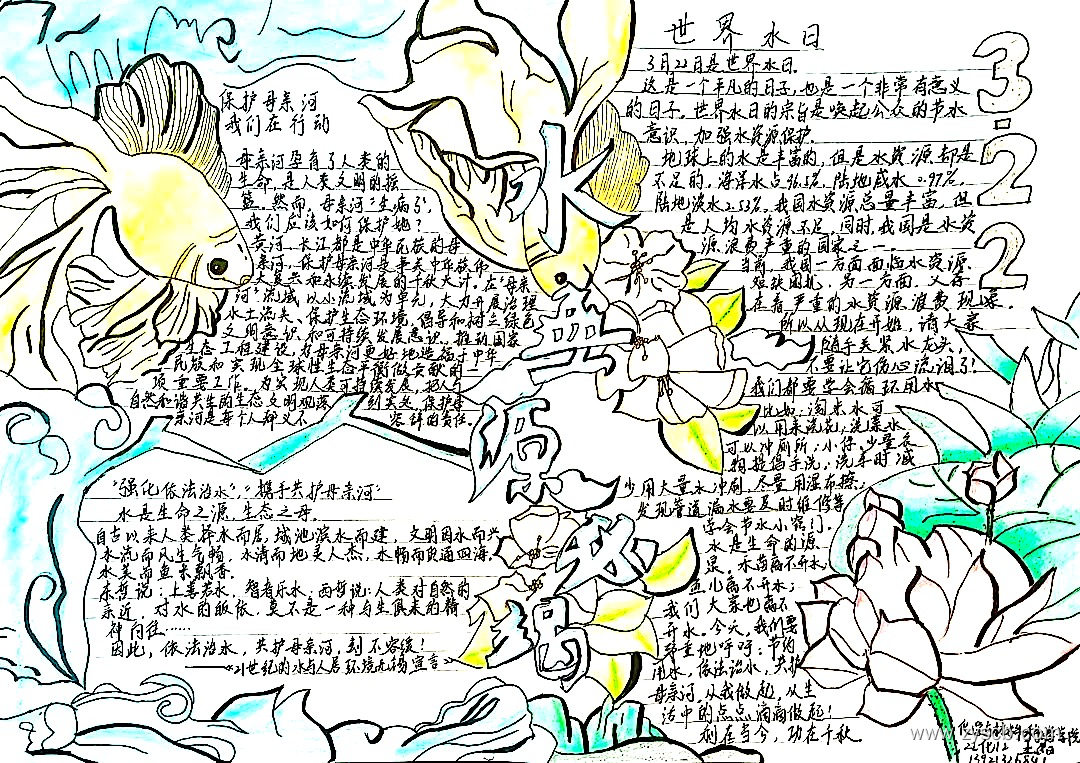 保护母亲河
我们在行动
母亲河孕育了人类的
生命，是人类文明的摇
篮。然而，母亲河“生病了”，
我们应该如何保护她？
黄河、长江都是中华民族的母
亲河，保护母亲河是事关中华民族
河”流域，以小流域为单元，大力开展治理
水土流失、保护生态环境，倡导和树立绿色
文明意识和可持续发展意识。推动国家
生态工程建设，为母亲河更好地造福于中华
民族和实现全球性生态平衡做贡献的一
项重要工作。为实现人类可持续发展，把人与
自然和谐共生的生态文明观落
到实处，保护母
亲河是每个人义不
容辞的责任。
水
源
世界水日
3月22日是世界水日。
这是一个平凡的日子，也是一个非常有意义
的日子。世界水日的宗旨是唤起公众的节水
意识，加强水资源保护。
地球上的水是丰富的，但是水资源却是
不足的，海洋水占96.5%，陆地咸水0.97%，
陆地淡水2.53%。我国水资源总量丰富，但
是人均水资源不足，同时，我国是水资
源浪费严重的国家之一。
当前，我国一方面面临水资源
短缺困扰，另一方面，又存
在着严重的水资源浪费现象。
所以从现在开始，请大家
随手关紧水龙头，
不要让它伤心流泪了！
我们都要学会循环用水
比如：淘米水可
以用来洗碗，洗菜水
可以冲厕所；小件、少量衣
物提倡手洗，洗车时减
少用大量水冲刷，尽量用湿布擦；
发现管道漏水要及时维修等
学会节水小窍门。
水是生命的源
泉。水草离不开水，
鱼儿离不开水；
我们大家也离不
开水。今天，我们要
郑重地呼吁：节约
用水，依法治水，共护
母亲河，从我做起，从生
活中的点点滴滴做起！
利在当今，功在千秋。
3.22
“强化依法治水”，“携手共护母亲河”
水是生命之源，生态之母。
自古以来人类择水而居，城池滨水而建，文明因水而兴
水洗而风生气畅，水清而地美人杰，水畅而货通四海，
水美而鱼米飘香。
东哲说：上善若水，智者乐水；西哲说：人类对自然的
亲近，对水的皈依，莫不是一种与生俱来的精
神向往……
因此，依法治水，共护母亲河，刻不容缓！